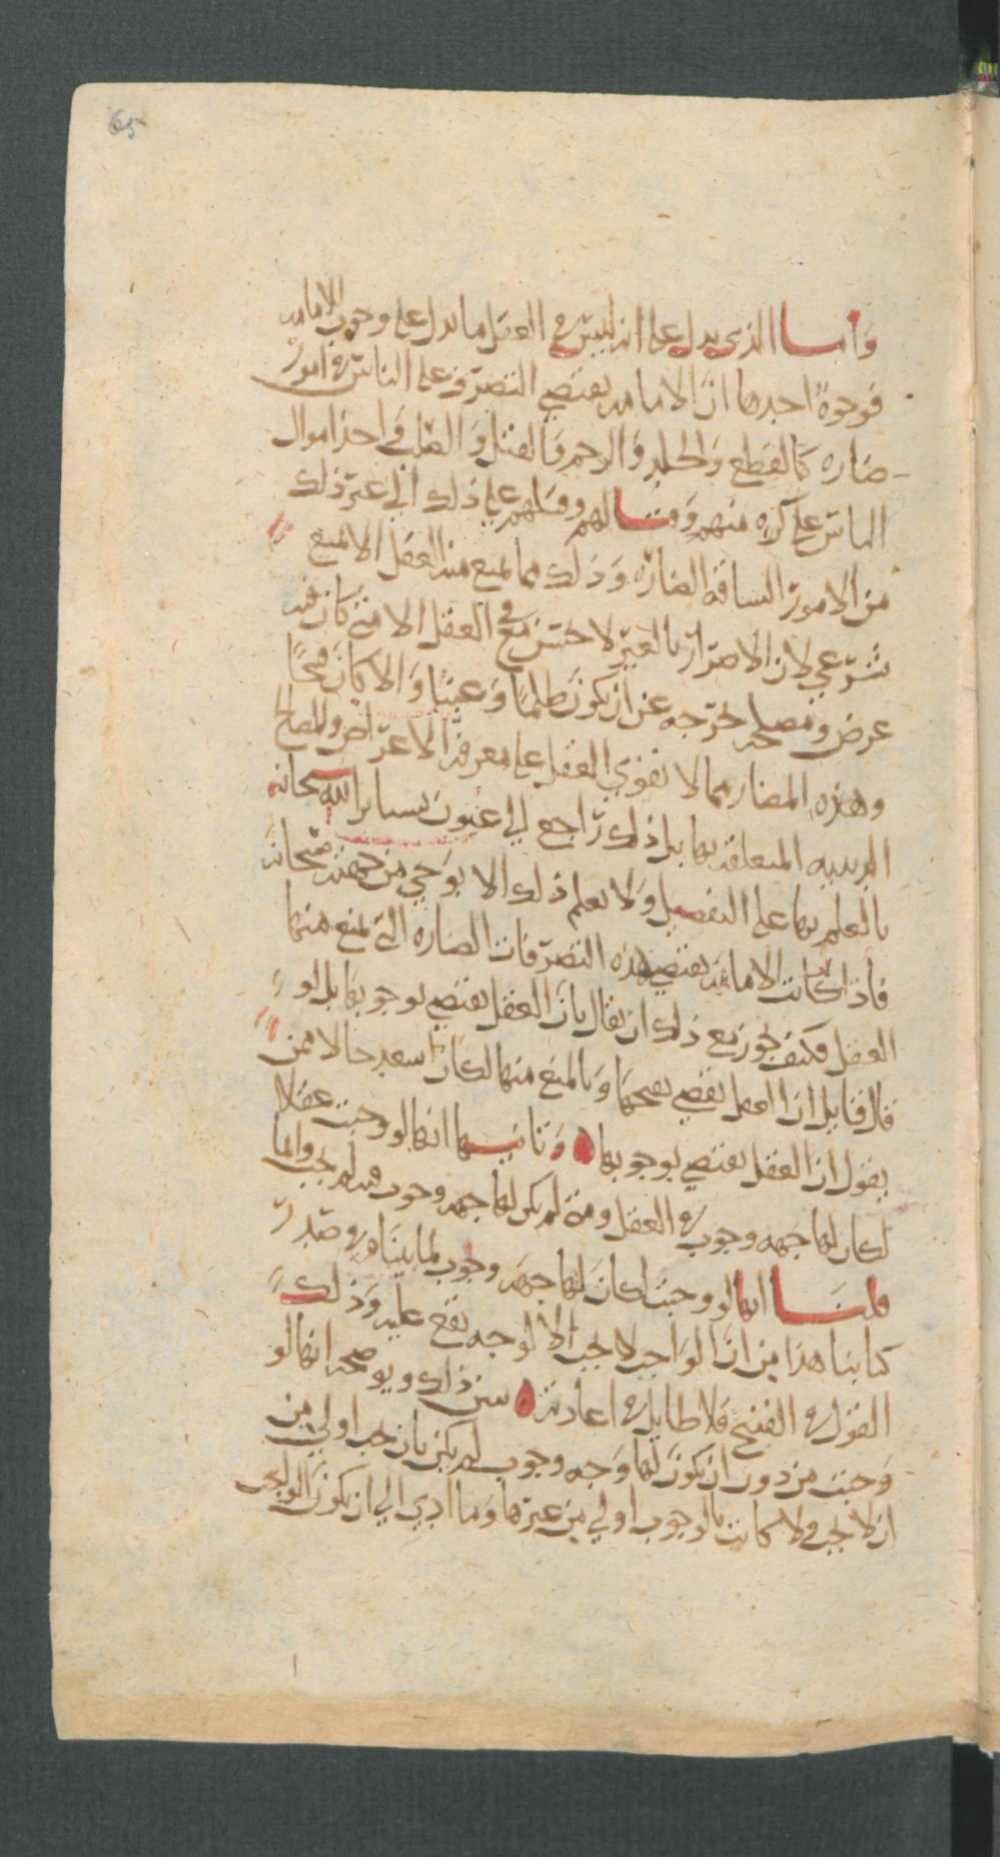 65
وأما الذي يدل على انه ليس في العقل ما يدل على وجوب الامامه
فوجوهٌ احدها ان الامامه تقتضي التصرف على الناس في امور
ضاره كالقطع والجلد والرجم والقتل و في اخذ اموال
الناس على كره منهم وقتالهم وقتلهم على ذلك الى غير ذلك
من الامور الشاقه الضاره وذلك مما يمنع منه العقل الا لمبيح
شرعي لان الاضرار بالغير لا يحسن في العقل الا متى كان فيه
غرض ومصلحه تخرجه عن ان يكون ظلما وعبثا والا كان قبيحًا
وهذه المضار مما لا يقوي العقل على معرفة الاعراض والمصالح
الدينيه المتعلقه بها بل ذلك راجع الى غيوب يستاثر الله سبحانه
بالعلم بها على التفصيل ولا يعلم ذلك الا بوحي من جهته سبحانه
فاذا كانت الامامه تقتضي هذه التصرفات الضاره التي يمنع منها
العقل فكيف يجوز مع ذلك ان يقال بان العقل يقتضي بوجوبها بل لو
قال قايل ان العقل يقضي بقبحها وبالمنع منها لكان اسعد حالا ممن
يقول ان العقل يقتضي بوجوبها وثانيها انها لو وجبت عقلا
لكان لها جهه وجوب في العقل ومتى لم يكن لها جهه وجوب فيه لم تجب وانما
قلنا انها لو وجبت لكان لها جهه وجوب لما بيناه في صدر
كتابنا هذا من ان الواجب لا يجب الا لوجه يقع عليه وذلك
القول في القبيح فلا طايل في اعادته يبين ذلك ويوضحه انها لو
وجبت من دون ان يكون لها وجه وجوب لم يكن بان تجب اولى من
ان لا تجب ولا كانت بالوجوب اولى من غيرها وما ادى الى ان يكون الواجب